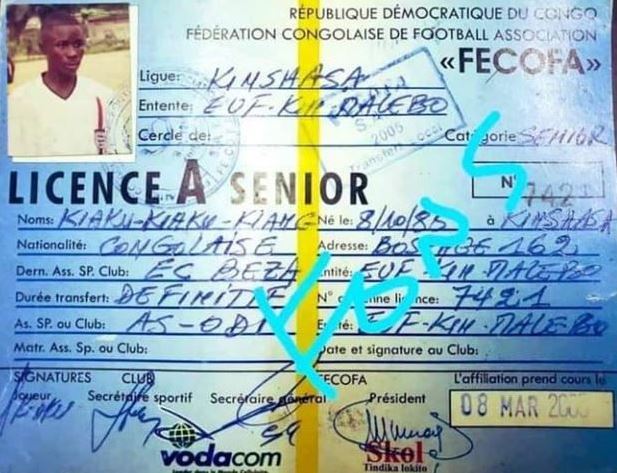 RÉPUBLIQUE DÉMOCRATIQUE DU CONGO
FÉDÉRATION CONGOLAISE DE FOOTBALL ASSOCIATION
«FECOFA»
Ligue: KINSHASA
Entente: EUF-KIN-MALEBO
Cercle de: Catégorie SENIOR
2005
LICENCE A SENIOR N° 7421
Noms: KIAKU-KIAKU-KIANG Né le: 8/10/85 à KINSHASA
Nationalité: CONGOLAISE Adresse: 162
Dern. Ass. SP. Club: EC BEZA Entité: EUF-KIN-MALEBO
Durée transfert: DEFINITIF N° licence: 7421
As. SP. ou Club: AS-ODI EUF-KIN-MALEBO
Matr. Ass. Sp. ou Club: Date et signature au Club:
SIGNATURES CLUB FECOFA L'affiliation prend cours le
Joueur Secrétaire sportif Secrétaire général Président 08 MAR
vodacom
Leader dans le Monde Cellulaire
Skol
Tindika lokito